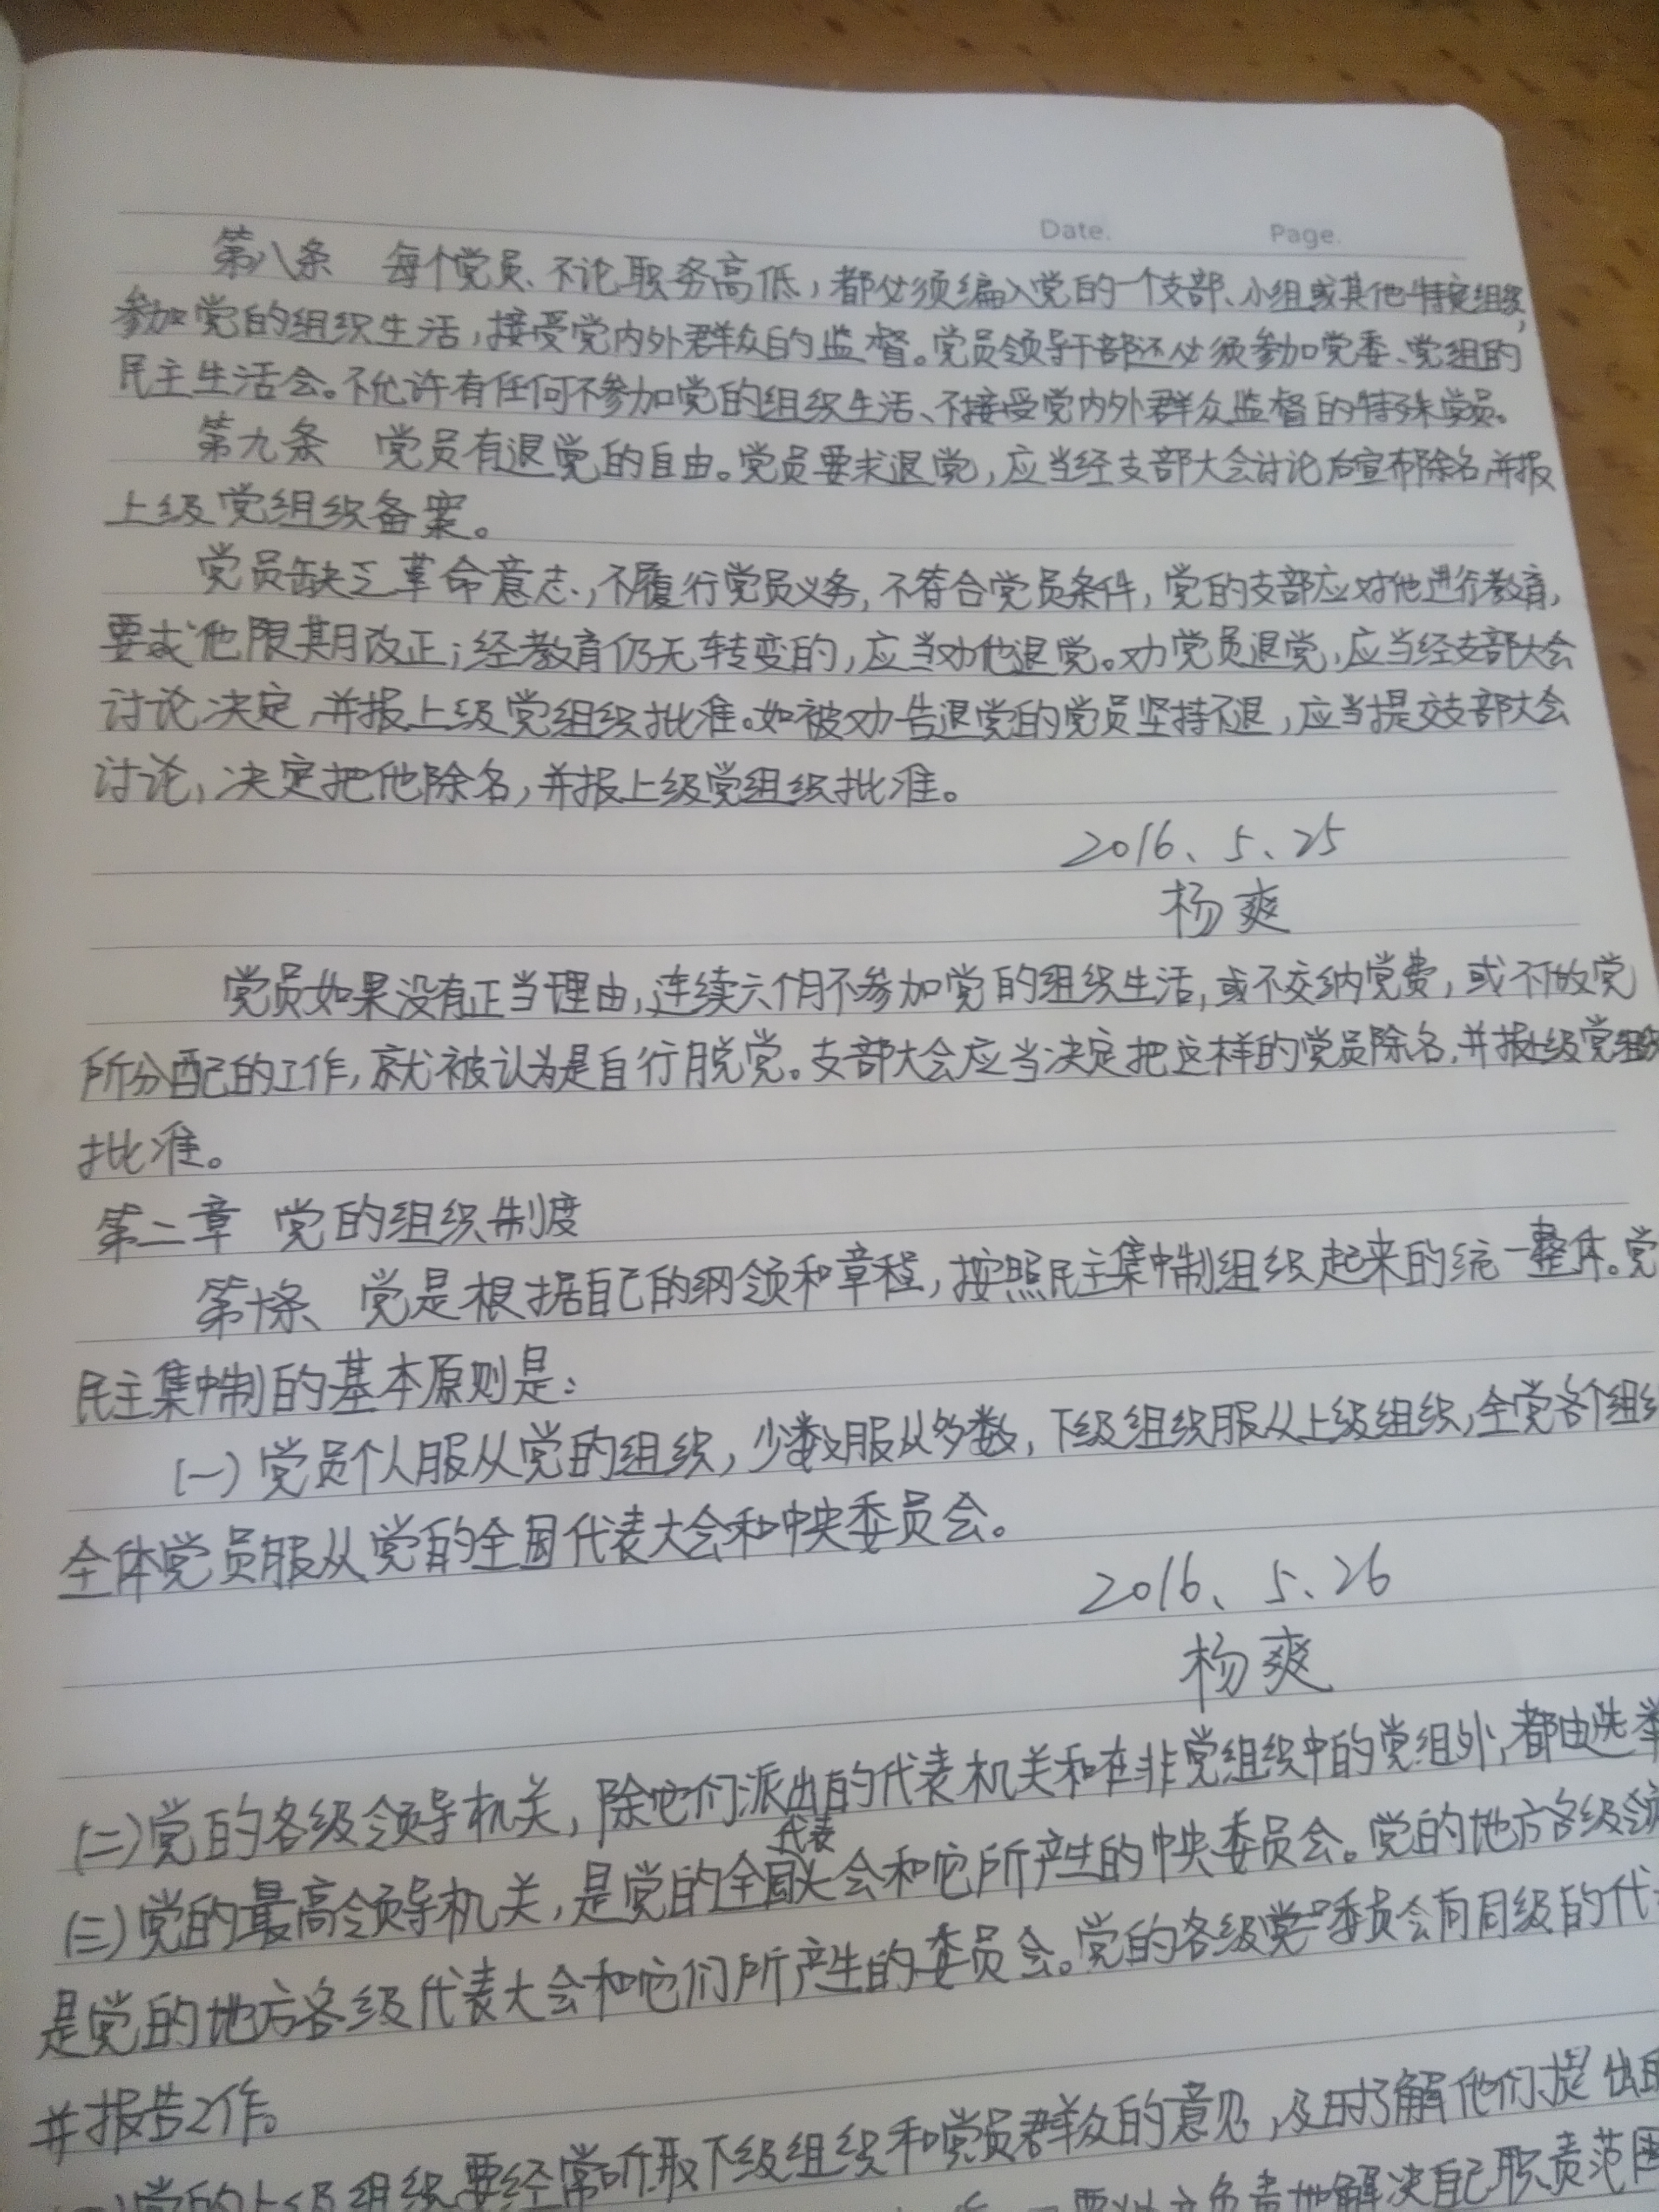 Date. Page.
第八条 每个党员、不论职务高低,都必须编入党的一个支部、小组或其他特定组织,
参加党的组织生活,接受党内外群众的监督。党员领导干部还必须参加党委、党组的
民主生活会。不允许有任何不参加党的组织生活、不接受党内外群众监督的特殊党员。
第九条 党员有退党的自由。党员要求退党,应当经支部大会讨论后宣布除名,并报
上级党组织备案。
党员缺乏革命意志,不履行党员义务,不符合党员条件,党的支部应对他进行教育,
要求他限期改正;经教育仍无转变的,应当劝他退党。劝党员退党,应当经支部大会
讨论决定,并报上级党组织批准。如被劝告退党的党员坚持不退,应当提交支部大会
讨论,决定把他除名,并报上级党组织批准。
2016、5、25
杨爽
党员如果没有正当理由,连续六个月不参加党的组织生活,或不交纳党费,或不做党
所分配的工作,就被认为是自行脱党。支部大会应当决定把这样的党员除名,并报上级党组织
批准。
第二章 党的组织制度
第十条、党是根据自己的纲领和章程,按照民主集中制组织起来的统一整体。党
民主集中制的基本原则是:
(一)党员个人服从党的组织,少数服从多数,下级组织服从上级组织,全党各个组织
全体党员服从党的全国代表大会和中央委员会。
2016、5、26
杨爽
(二)党的各级领导机关,除它们派出的代表机关和在非党组织中的党组外,都由选举
(三)党的最高领导机关,是党的全国代表大会和它所产生的中央委员会。党的地方各级领
是党的地方各级代表大会和它们所产生的委员会。党的各级委员会向同级的代
并报告工作。
党的上级组织要经常听取下级组织和党员群众的意见,及时了解他们提出的
要独立负责地解决自己职责范围